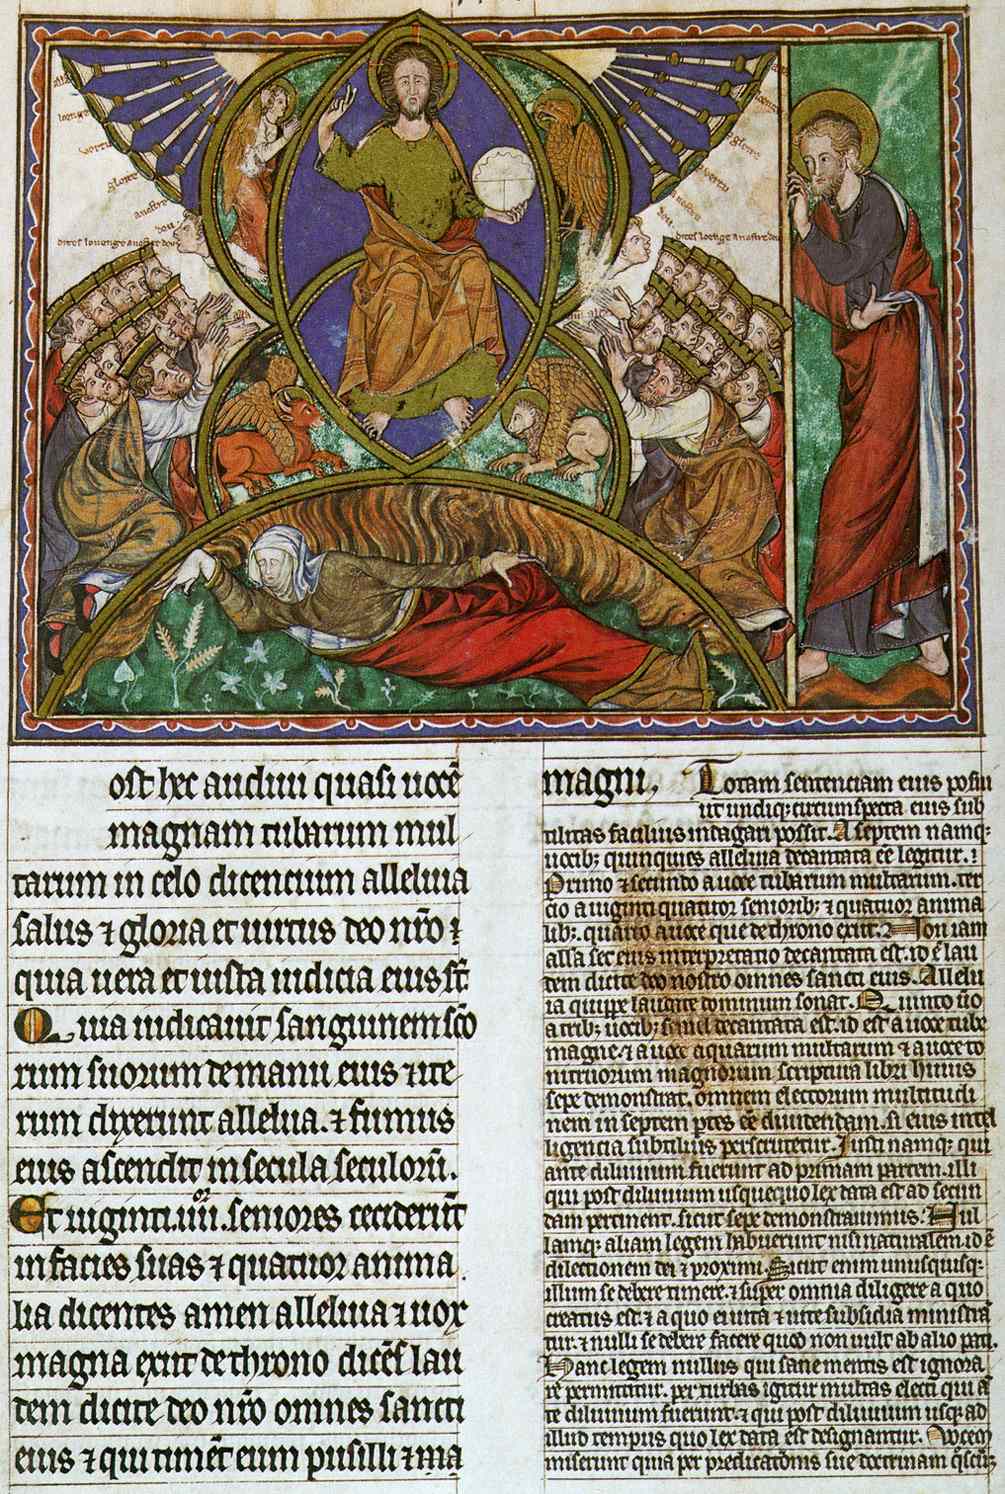 louenge
uertu
glorie
a nostre
deu
dites louenge a nostre deu
glorie
uertu
a nostre
deu
dites louenge a nostre deu
ost hec audiui quasi uocē
magnam tubarum mul
tarum in celo dicencium alleluia
salus ⁊ gloria et uirtus deo nr̄o ē
quia uera et iusta iudicia eius st̄
Quia iudicauit sanguinem sc̄o
rum suorum de manu eius ⁊ ite
rum dixerunt alleluia. ⁊ fumus
eius ascendit in secula seculorū.
Et uiginti .iiii. seniores ceciderūt
in facies suas ⁊ quatuor anima
lia dicentes amen alleluia ⁊ uox
magna exiit de throno dicēs lau
dem dicite deo nr̄o omnes sancti
eius ⁊ qui timēt eum pusilli ⁊ ma
magni, Totam sentenciam eius posui
ut undiq; circumspecta eius sub
tilitas facilius indagari possit. A septem namq;
uocib; quinquies alleluia decantata eē legitur.
Primo ⁊ secundo a uoce tubarum multarum. ter
cio a uiginti quatuor seniorib; ⁊ quatuor anima
lib;. quarto a uoce que de throno exiit. Non iam
all'a sed eius interpretatio decantata est. id ē lau
dem dicite deo nostro omnes sancti eius. Allelu
ia quippe laudate dominum sonat. Quinto ū'o
a trib; uocib; simul decantata est. id est a uoce tube
magne. ⁊ a uoce aquarum multarum ⁊ a uoce to
nitruorum magnorum scriptura libri huius
sepe demonstrat, omnem electorum multitudi
nem in septem p̄tes eē diuidendam. si eius intel
ligencia subtilius perscrutetur. Iusti namq; qui
ante diluuium fuerunt ad primam partem. illi
qui post diluuium usquequo lex data est ad secun
dam pertinent. sicut sepe demonstrauimus. Nul
lamq; aliam legem habuerunt nisi naturalem. id ē
dilectionem dei ⁊ proximi. Sicut enim unusquisq;
illum se debere timere. ⁊ super omnia diligere a quo
creatus est. ⁊ a quo ei uita ⁊ uite subsidia ministrā
tur. ⁊ nulli se debere facere quod non uult ab alio pati.
Hanc legem nullus qui sane mentis est ignora
re permittitur. per turbas igitur multas electi qui ā
te diluuium fuerunt. ⁊ qui post diluuium usq; ad
illud tempus quo lex data est designantur. Vocem
miserunt quia per predicatōnis sue doctrinam